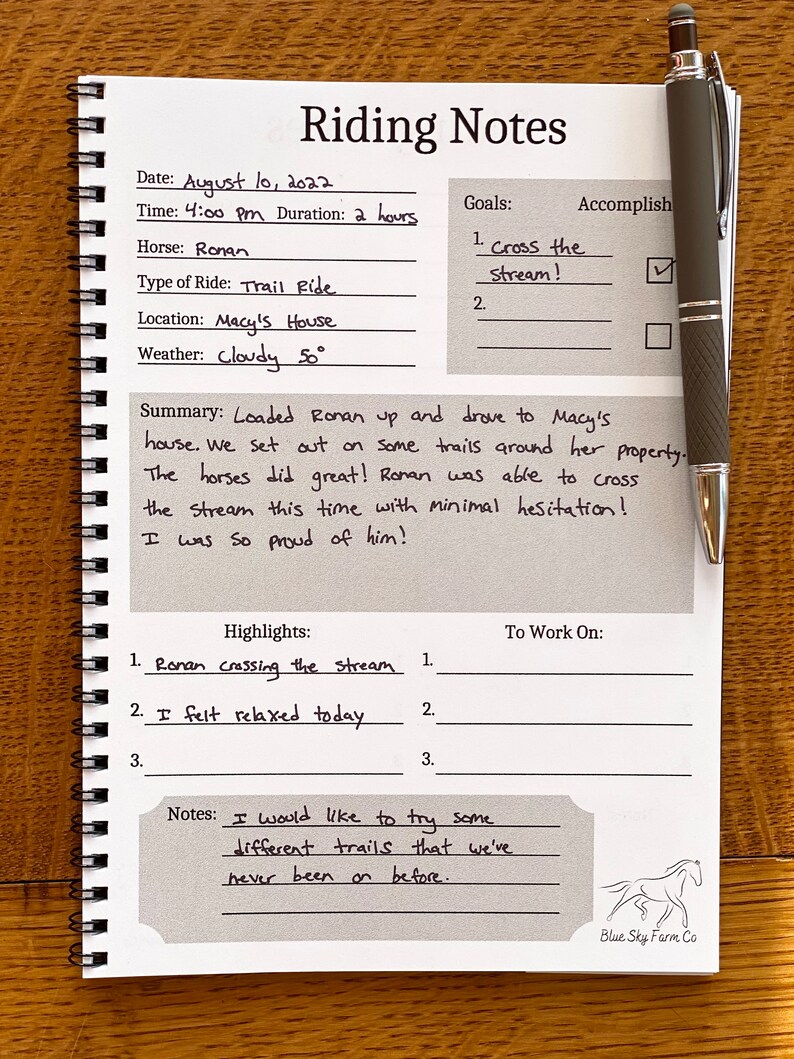 Riding Notes
Date: August 10, 2022
Time: 4:00 pm Duration: 2 hours
Horse: Ronan
Type of Ride: Trail Ride
Location: Macy's House
Weather: Cloudy 50°
Goals: Accomplish
1. Cross the
stream!
2.
Summary: Loaded Ronan up and drove to Macy's
house. We set out on some trails around her property.
The horses did great! Ronan was able to cross
the stream this time with minimal hesitation!
I was so proud of him!
Highlights:
1. Ronan crossing the stream
2. I felt relaxed today
3.
To Work On:
1.
2.
3.
Notes: I would like to try some
different trails that we've
never been on before.
Blue Sky Farm Co